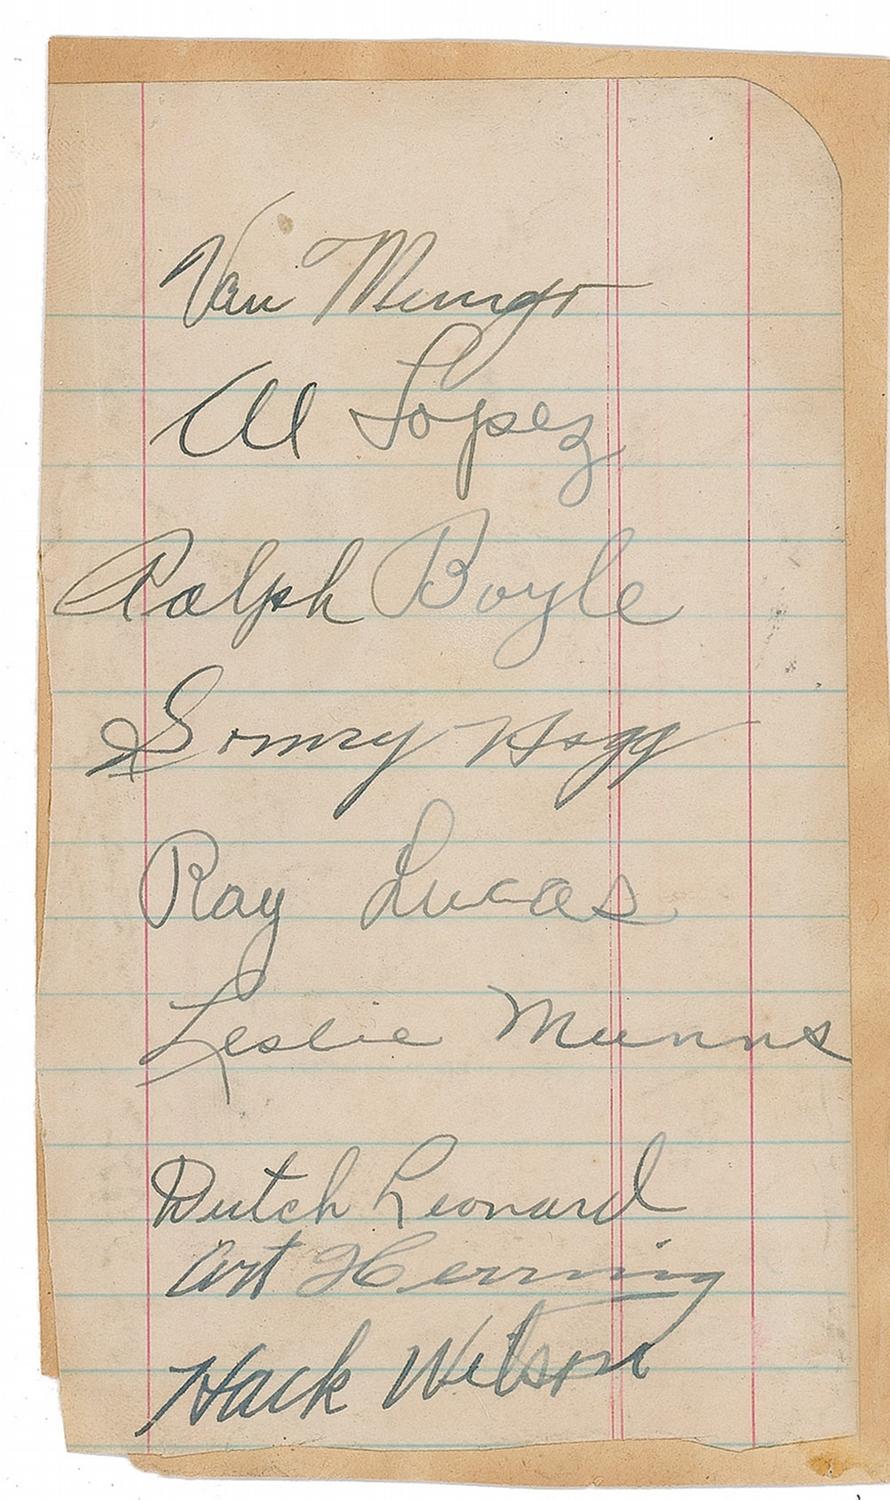 Van Mungo
Al Lopez
Ralph Boyle
Sonny Hogg
Ray Lucas
Leslie Munns
Dutch Leonard
Art Herring
Hack Wilson